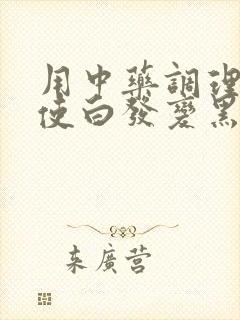 用中藥調理
使白發變黑
来廣营